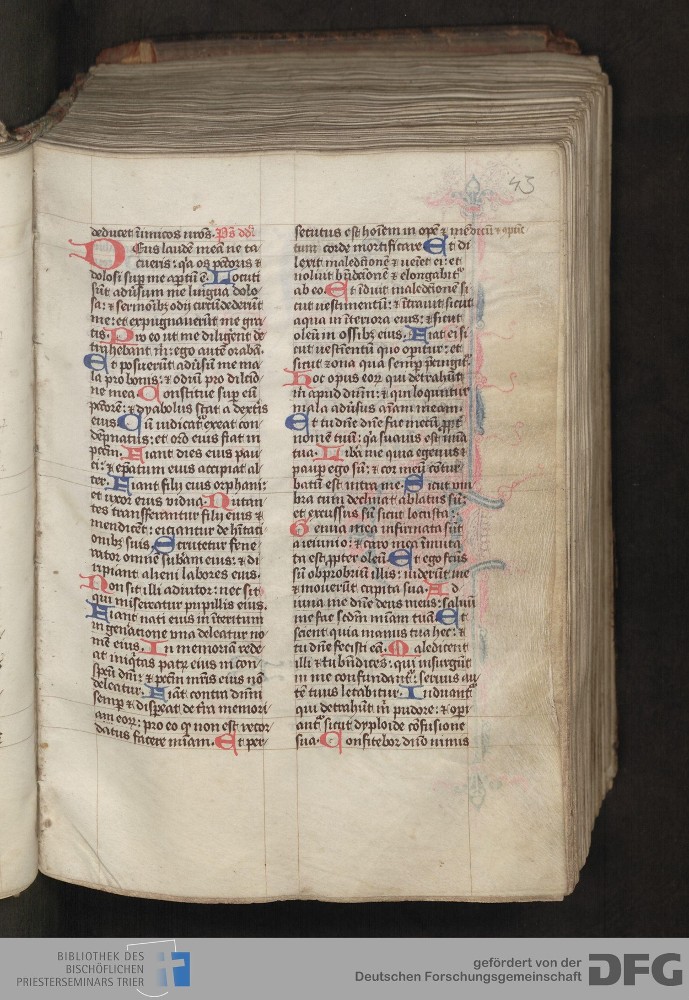 43
deducet inimicos nros. Ps dd
Deus laudē meā ne ta
cueris: qa os pctoris &
dolosi sup me aptū ē. Locuti
sūt adūsum me lingua dolo
sa: & sermoībz odij circūdederūt
me: et expugnauerūt me gra
tis. Pro eo ut me diligent de
trahebant m: ego autē orabā.
Et posuerūt adūsū me ma
la pro bonis: & odiū pro dilctō
ne mea. Constitue sup eū
pctorē: & dyabolus stat a dextis
eius. Cū iudicat exeat con
dēpnatus: et orō eius fiat in
pctm. Fiant dies eius pau
ci: & epatum eius accipiat al
ter. Fiant filij eius orphani:
et uxor eius vidua. Nutan
tes transferantur filij eius &
mendicēt: eiciantur de hitaci
onibz suis. Scrutetur fene
rator omnē subam eius: & di
ripiant alieni labores eius.
Non sit illi adiutor: nec sit
qui misereatur pupillis eius.
Fiant nati eius in īteritum
in genacione una deleatur no
mē eius. In memoriā rede
at iniqtas patr eius in con
spcū dni: & pctm mris eius nō
deleatur. Fiāt contra dnm
semp & dispeat de tra memori
am eorum: pro eo q non est recor
datus facere miam. Et per
secutus est hoīem inopē & mēdicū & opūc
tum corde mortificare. Et di
lexit maledcōnē & ueīet ei: et
noluit bndcōnē & elongabit
ab eo. Et īduit maledcōnē si
cut uestimentū: & ītrauit sicut
aqua in īteriora eius: & sicut
oleū in ossibz eius. Fiat ei si
cut uestīentū quo opitur: et
sicut zona qua semp pcīngit.
Hoc opus eorū qui detrahūt
m apud dnm: & qui loquuntur
mala adūsus aīam meam.
Et tu dnē dnē fac mecū ppt
nomē tuū: qa suauis est mīa
tua. Libera me quia egenus &
paup ego sū: & cor meū cōtur
batū est intra me. Sicut um
bra cum declinat ablatus sū:
et excussus sū sicut locusta.
Genua mea infirmata sūt
a ieiunio: & caro mea īmuta
ta est ppter oleū. Et ego fcūs
sū obprobriū illis: uiderūt me
& mouerūt capita sua. Ad
iuua me dnē deus meus: saluū
me fac scdm miam tuā. Et
scient quia manus tua hec: &
tu dnē fecisti eā. Maledicent
illi & tu bndices: qui insurgūt
in me confundant: seruus au
tē tuus letabitur. Induant
qui detrahūt m pudore: & opi
ant sicut dyploide cōfusione
sua. Confitebor dnō nimis
BIBLIOTHEK DES
BISCHÖFLICHEN
PRIESTERSEMINARS TRIER
gefördert von der
Deutschen Forschungsgemeinschaft
DFG